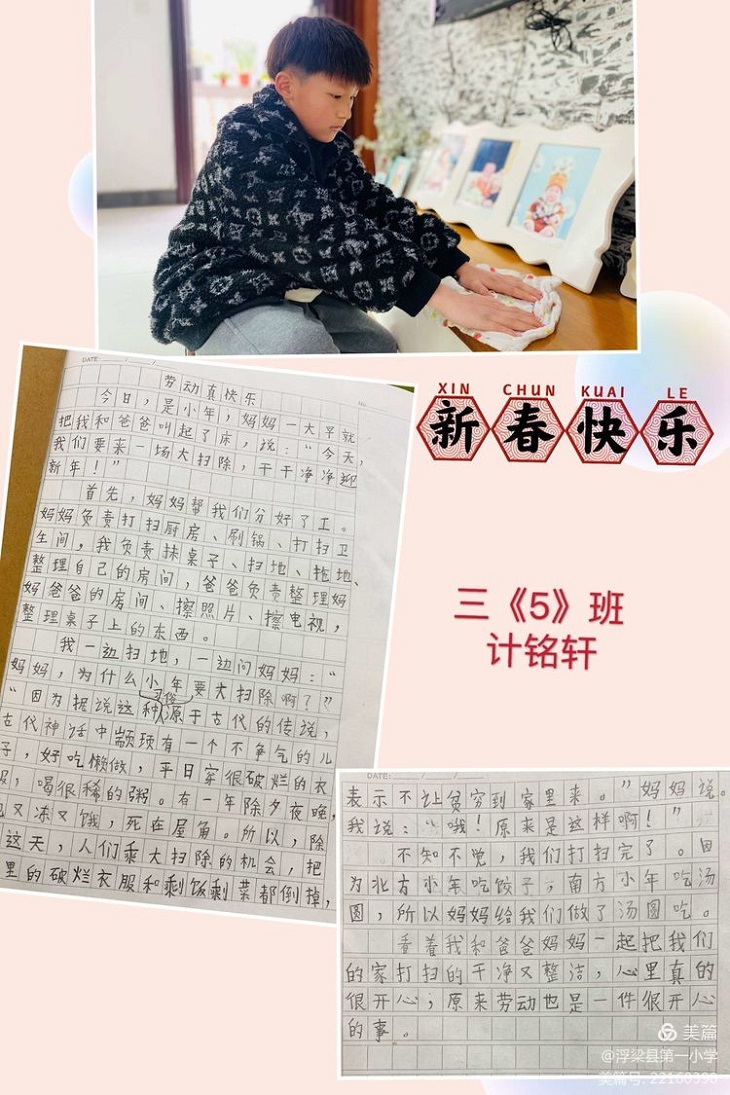 XIN CHUN KUAI LE
新春快乐
三《5》班
计铭轩
DATE:
劳动真快乐
今日，是小年，妈妈一大早就
把我和爸爸叫起了床，说：“今天，
我们要来一场大扫除，干干净净迎
新年！”
首先，妈妈帮我们分好了工。
妈妈负责打扫厨房、刷锅、打扫卫
生间，我负责抹桌子、扫地、拖地、
整理自己的房间，爸爸负责整理妈
妈爸爸的房间、擦照片、擦电视，
整理桌子上的东西。
我一边扫地，一边问妈妈：“
妈妈，为什么小年要大扫除啊？”
“因为据说这种习俗源于古代的传说，
古代神话中颛顼有一个不争气的儿
子，好吃懒做，平日穿很破烂的衣
服，喝很稀的粥。有一年除夕夜晚，
又冻又饿，死在屋角。所以，除
这天，人们乘大扫除的机会，把
里的破烂衣服和剩饭剩菜都倒掉，
DATE:
表示不让贫穷到家里来。”妈妈说。
我说：“哦！原来是这样啊！”
不知不觉，我们打扫完了。因
为北方小年吃饺子，南方小年吃汤
圆，所以妈妈给我们做了汤圆吃。
看着我和爸爸妈妈一起把我们
的家打扫的干净又整洁，心里真的
很开心；原来劳动也是一件很开心
的事。
美篇
@浮梁县第一小学
美篇号: 22160398